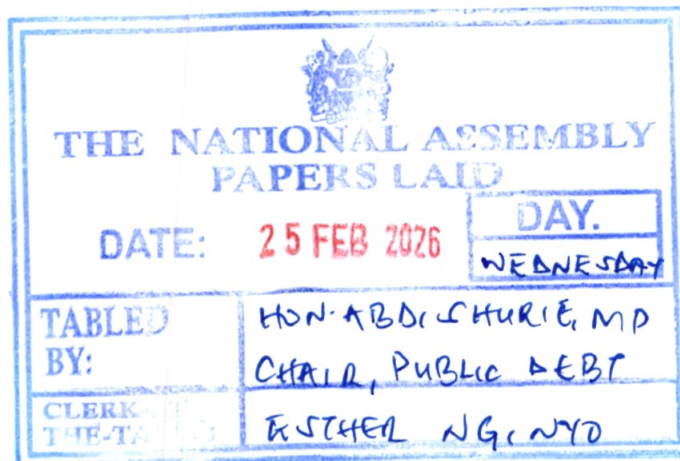 THE NATIONAL ASSEMBLY
PAPERS LAID
DATE: 25 FEB 2026
DAY.
WEDNESDAY
TABLED BY:
HON. ABDI SHURIE, MP
CHAIR, PUBLIC DEBT
CLERK
THE-TA
ESTHER NGINYO